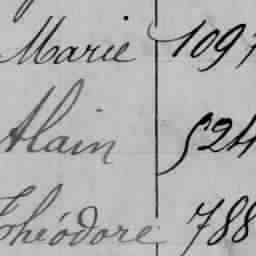 Marie 1097
Alain 524
Théodore 788